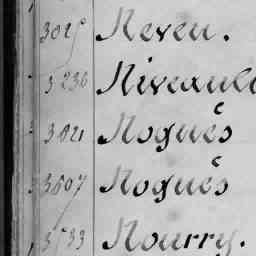 3025 Neveu.
3236 Niveaul
3021 Nogués
3507 Nogués
3533 Nourry.